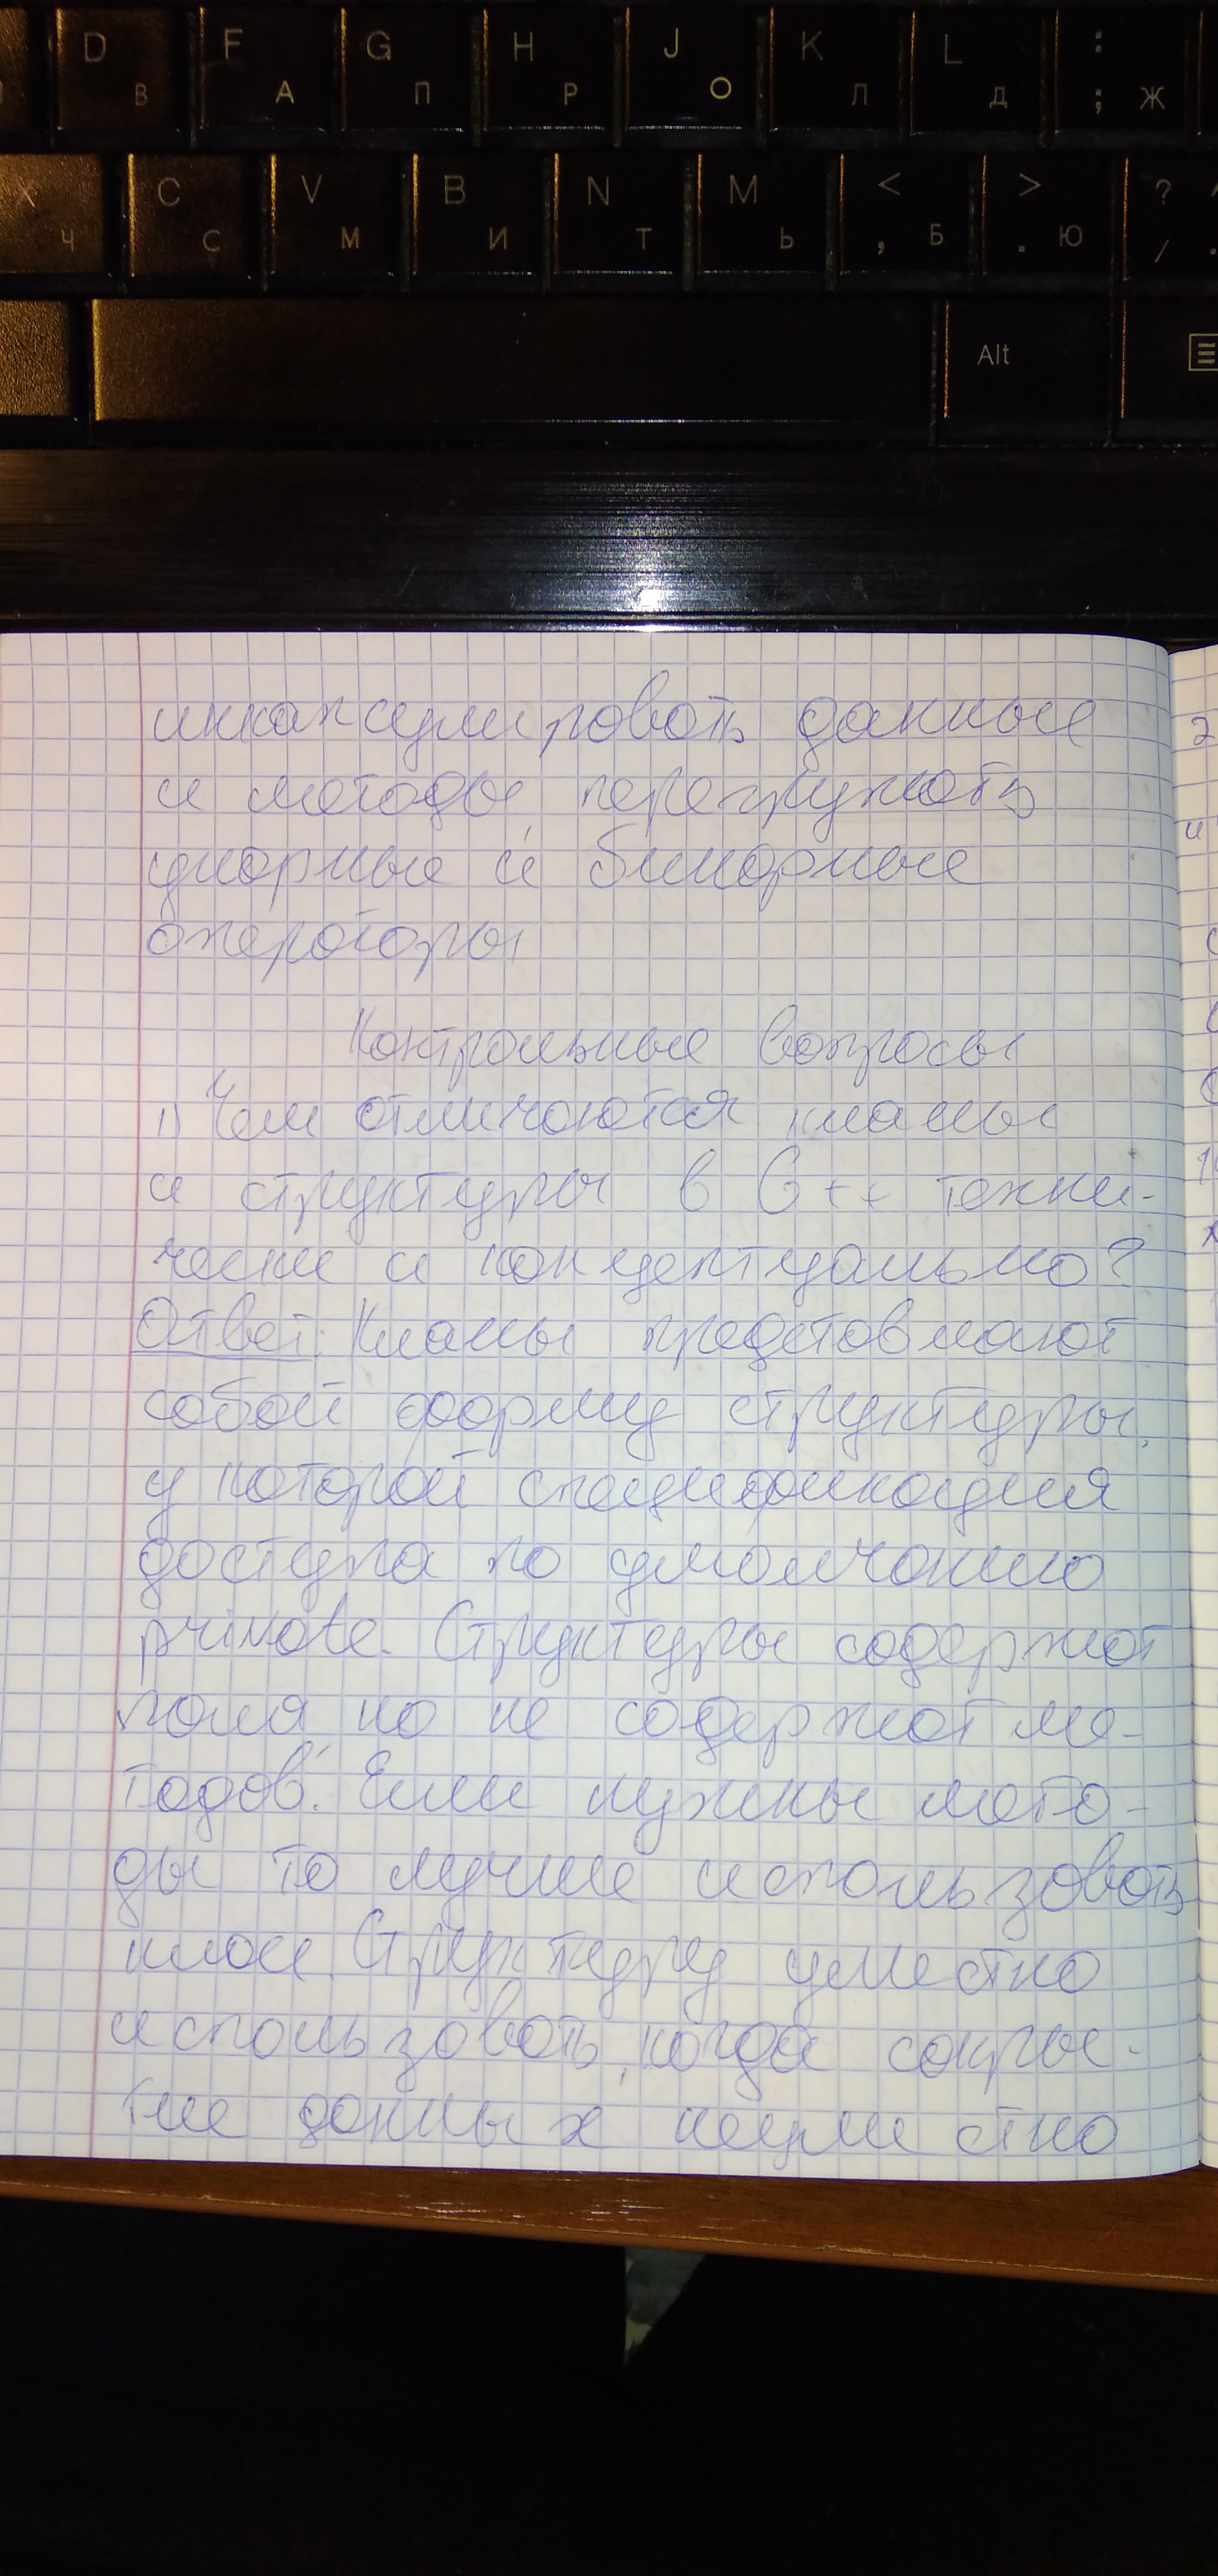 D В F А G П H Р J О K Л L Д : ; Ж
X Ч C С V М B И N Т M Ь < , Б > . Ю ? / .
Alt
инкапсулировать данные
и методы, перегружать
унарные и бинарные
операторы
Контрольные вопросы
1) Чем отличаются классы
и структуры в C++ техни-
чески и концептуально?
Ответ: Классы представляют
собой форму структуры,
у которой спецификация
доступа по умолчанию
private. Структуры содержат
поля, но не содержат ме-
тодов. Если нужны мето-
ды то лучше использовать
класс. Структуру уместно
использовать, когда сокры-
тие данных неуместно